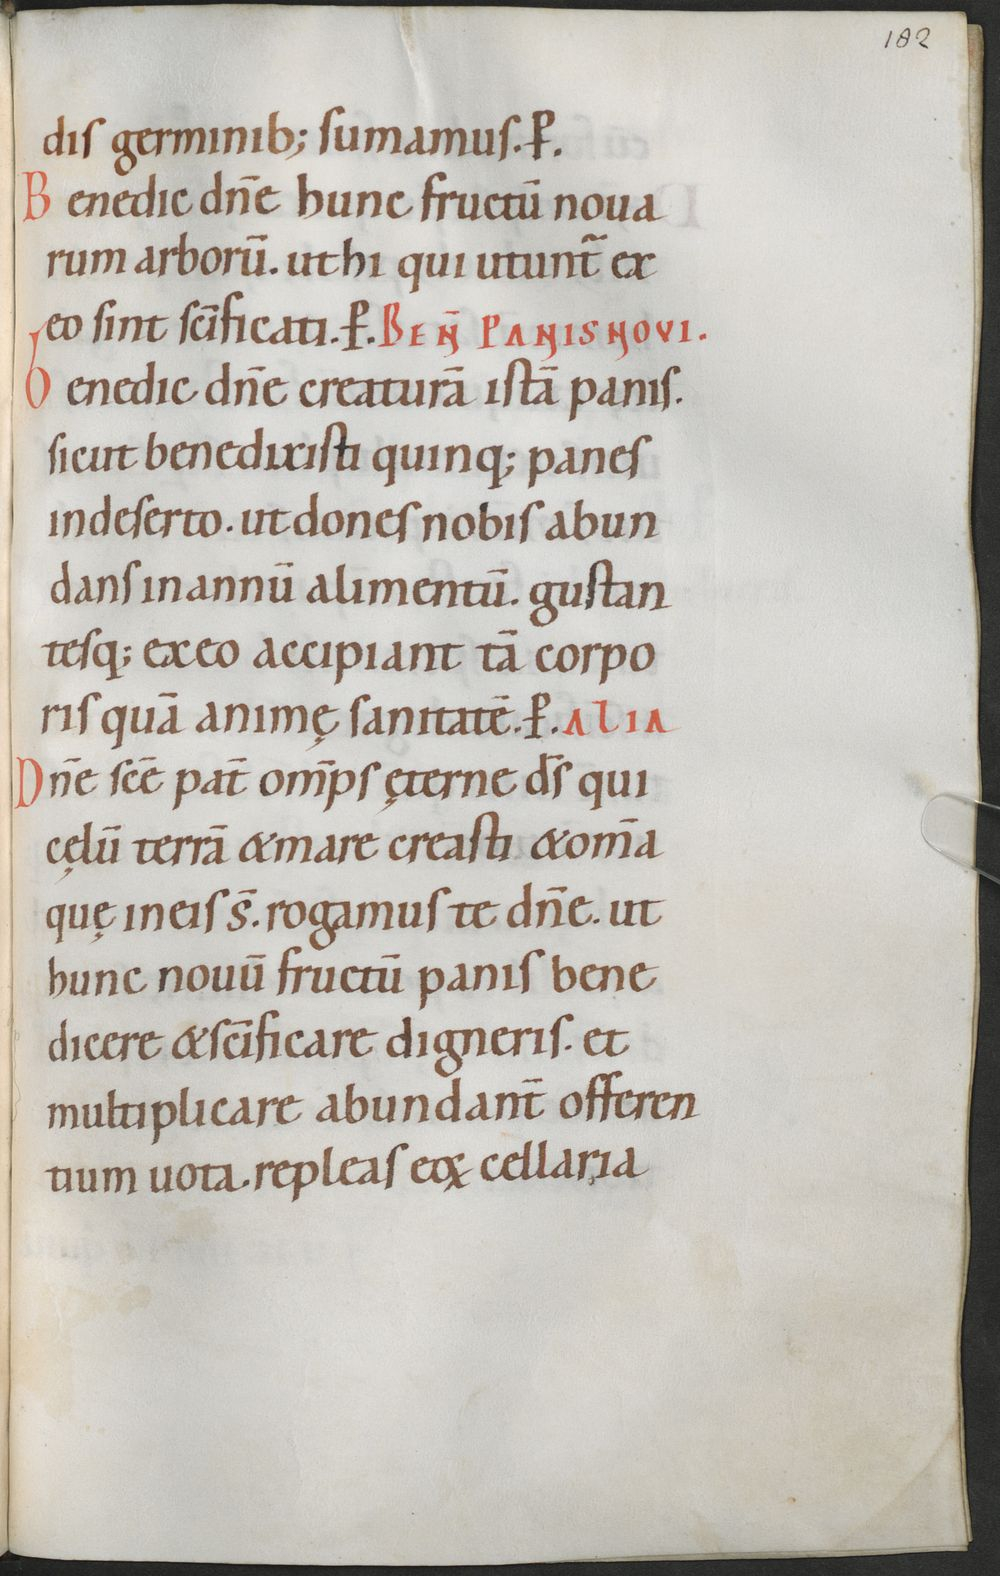 182
dis germinib; sumamus. P̄.
Benedic dn̄e hunc fructū noua
rum arborū. ut hi qui utunt̄ ex
eo sint sc̄ificati. P̄. BEN̄ PANIS NOVI.
benedic dn̄e creaturā istā panis.
sicut benedixisti quinq; panes
in deserto. ut dones nobis abun
dans in annū alimentū. gustan
tesq; ex eo accipiant tā corpo
ris quā animę sanitatē. P̄. ALIA
Dn̄e sc̄e pat̄ om̄ps ęterne d̄s qui
cęlū terrā & mare creasti & om̄a
quę in eis s̄. rogamus te dn̄e. ut
hunc nouū fructū panis bene
dicere & sc̄ificare digneris. et
multiplicare abundant̄ offeren
tium uota. repleas eoꝝ cellaria